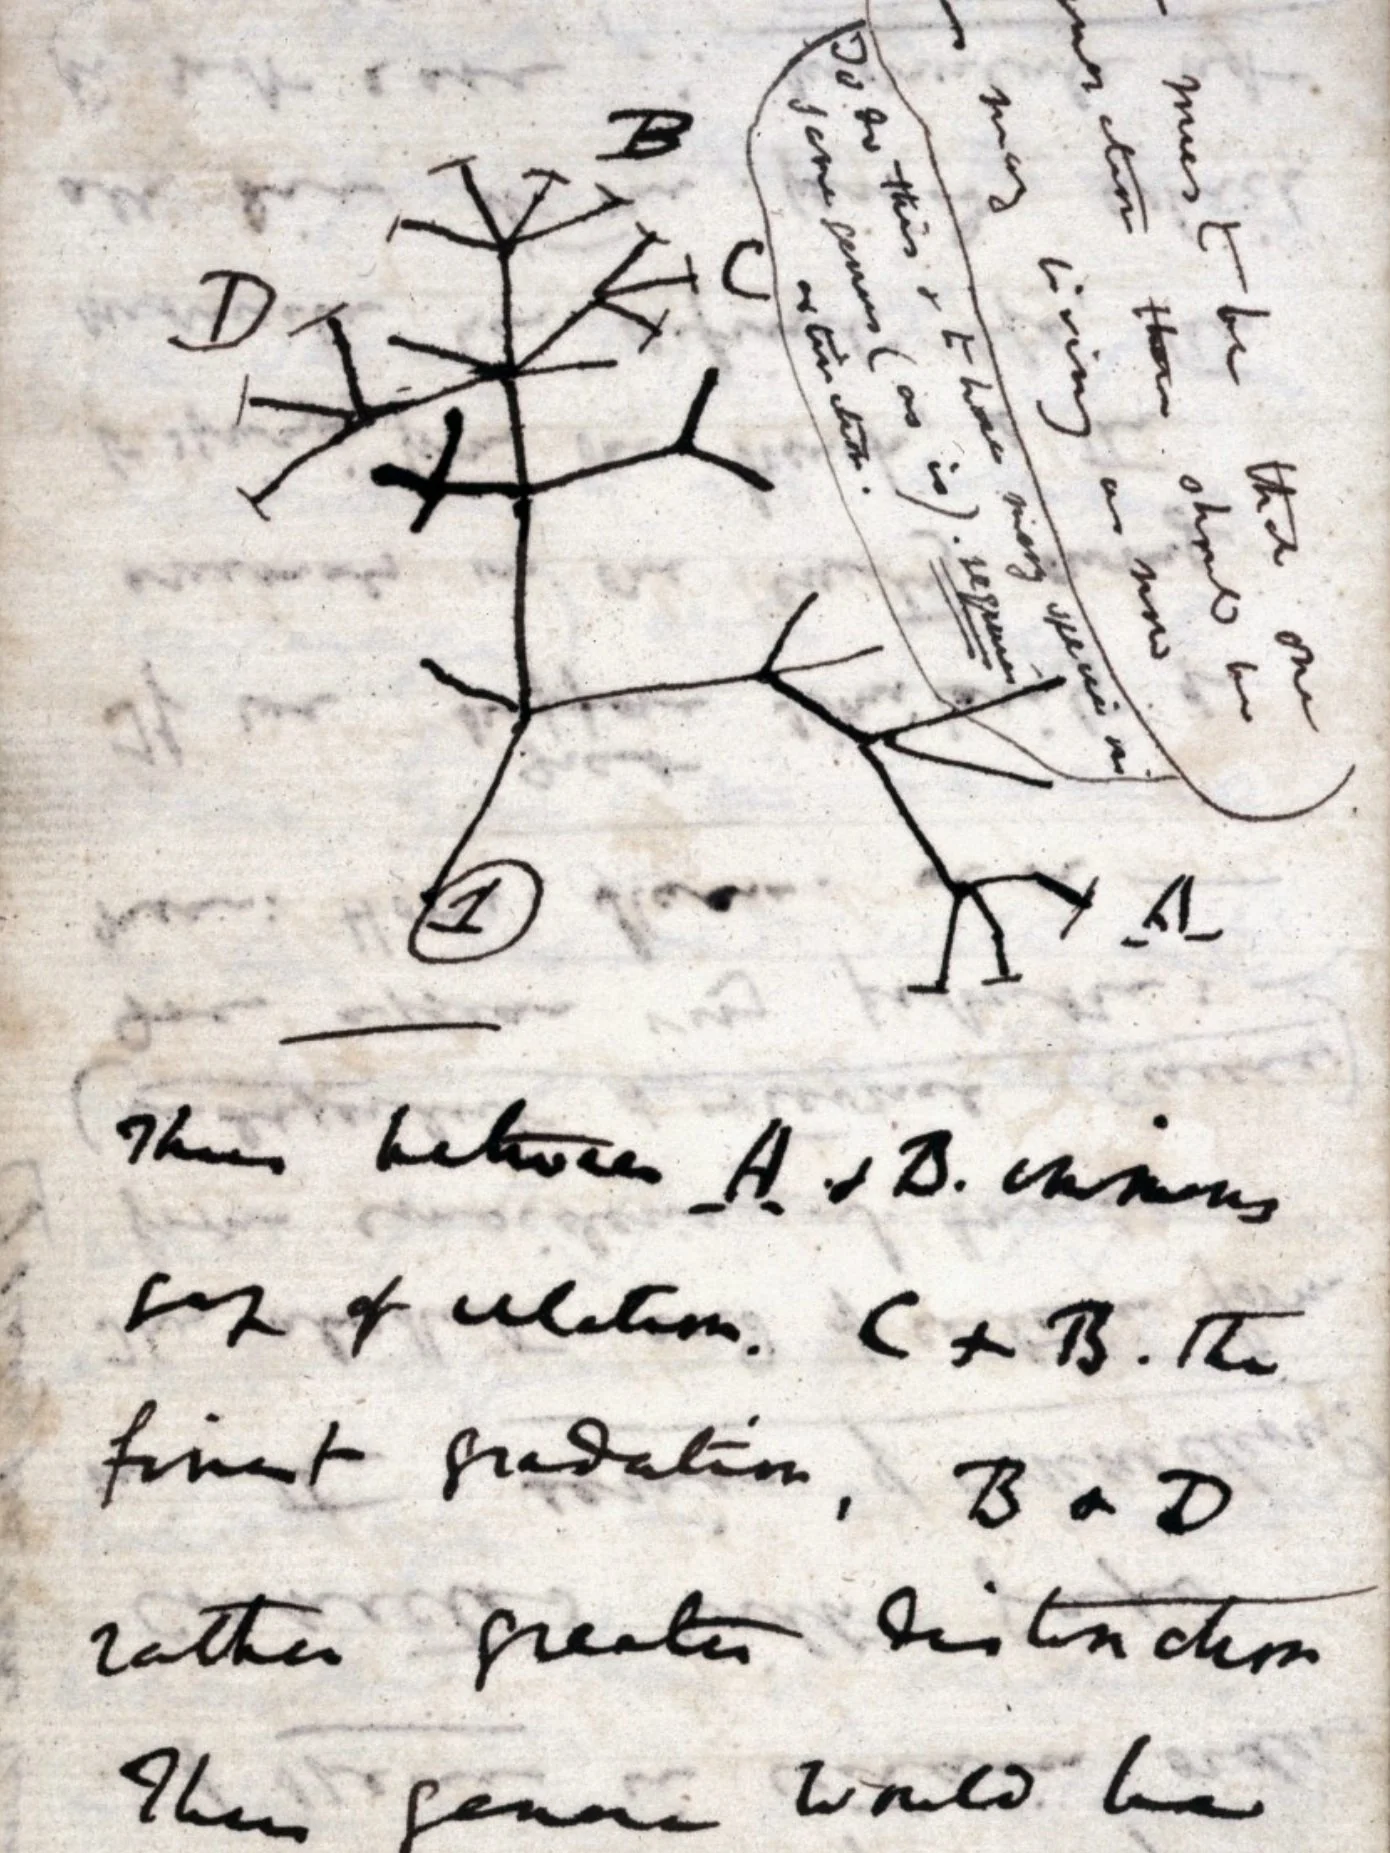 must be that one
then should be
many living as now
To do this & to have many species in
same genus (as is). requires
extinction.
B
C
D
1
A
Thus between A. & B. immense
gap of relation. C & B. The
finest gradation, B & D
rather greater distinction
Thus genera would be